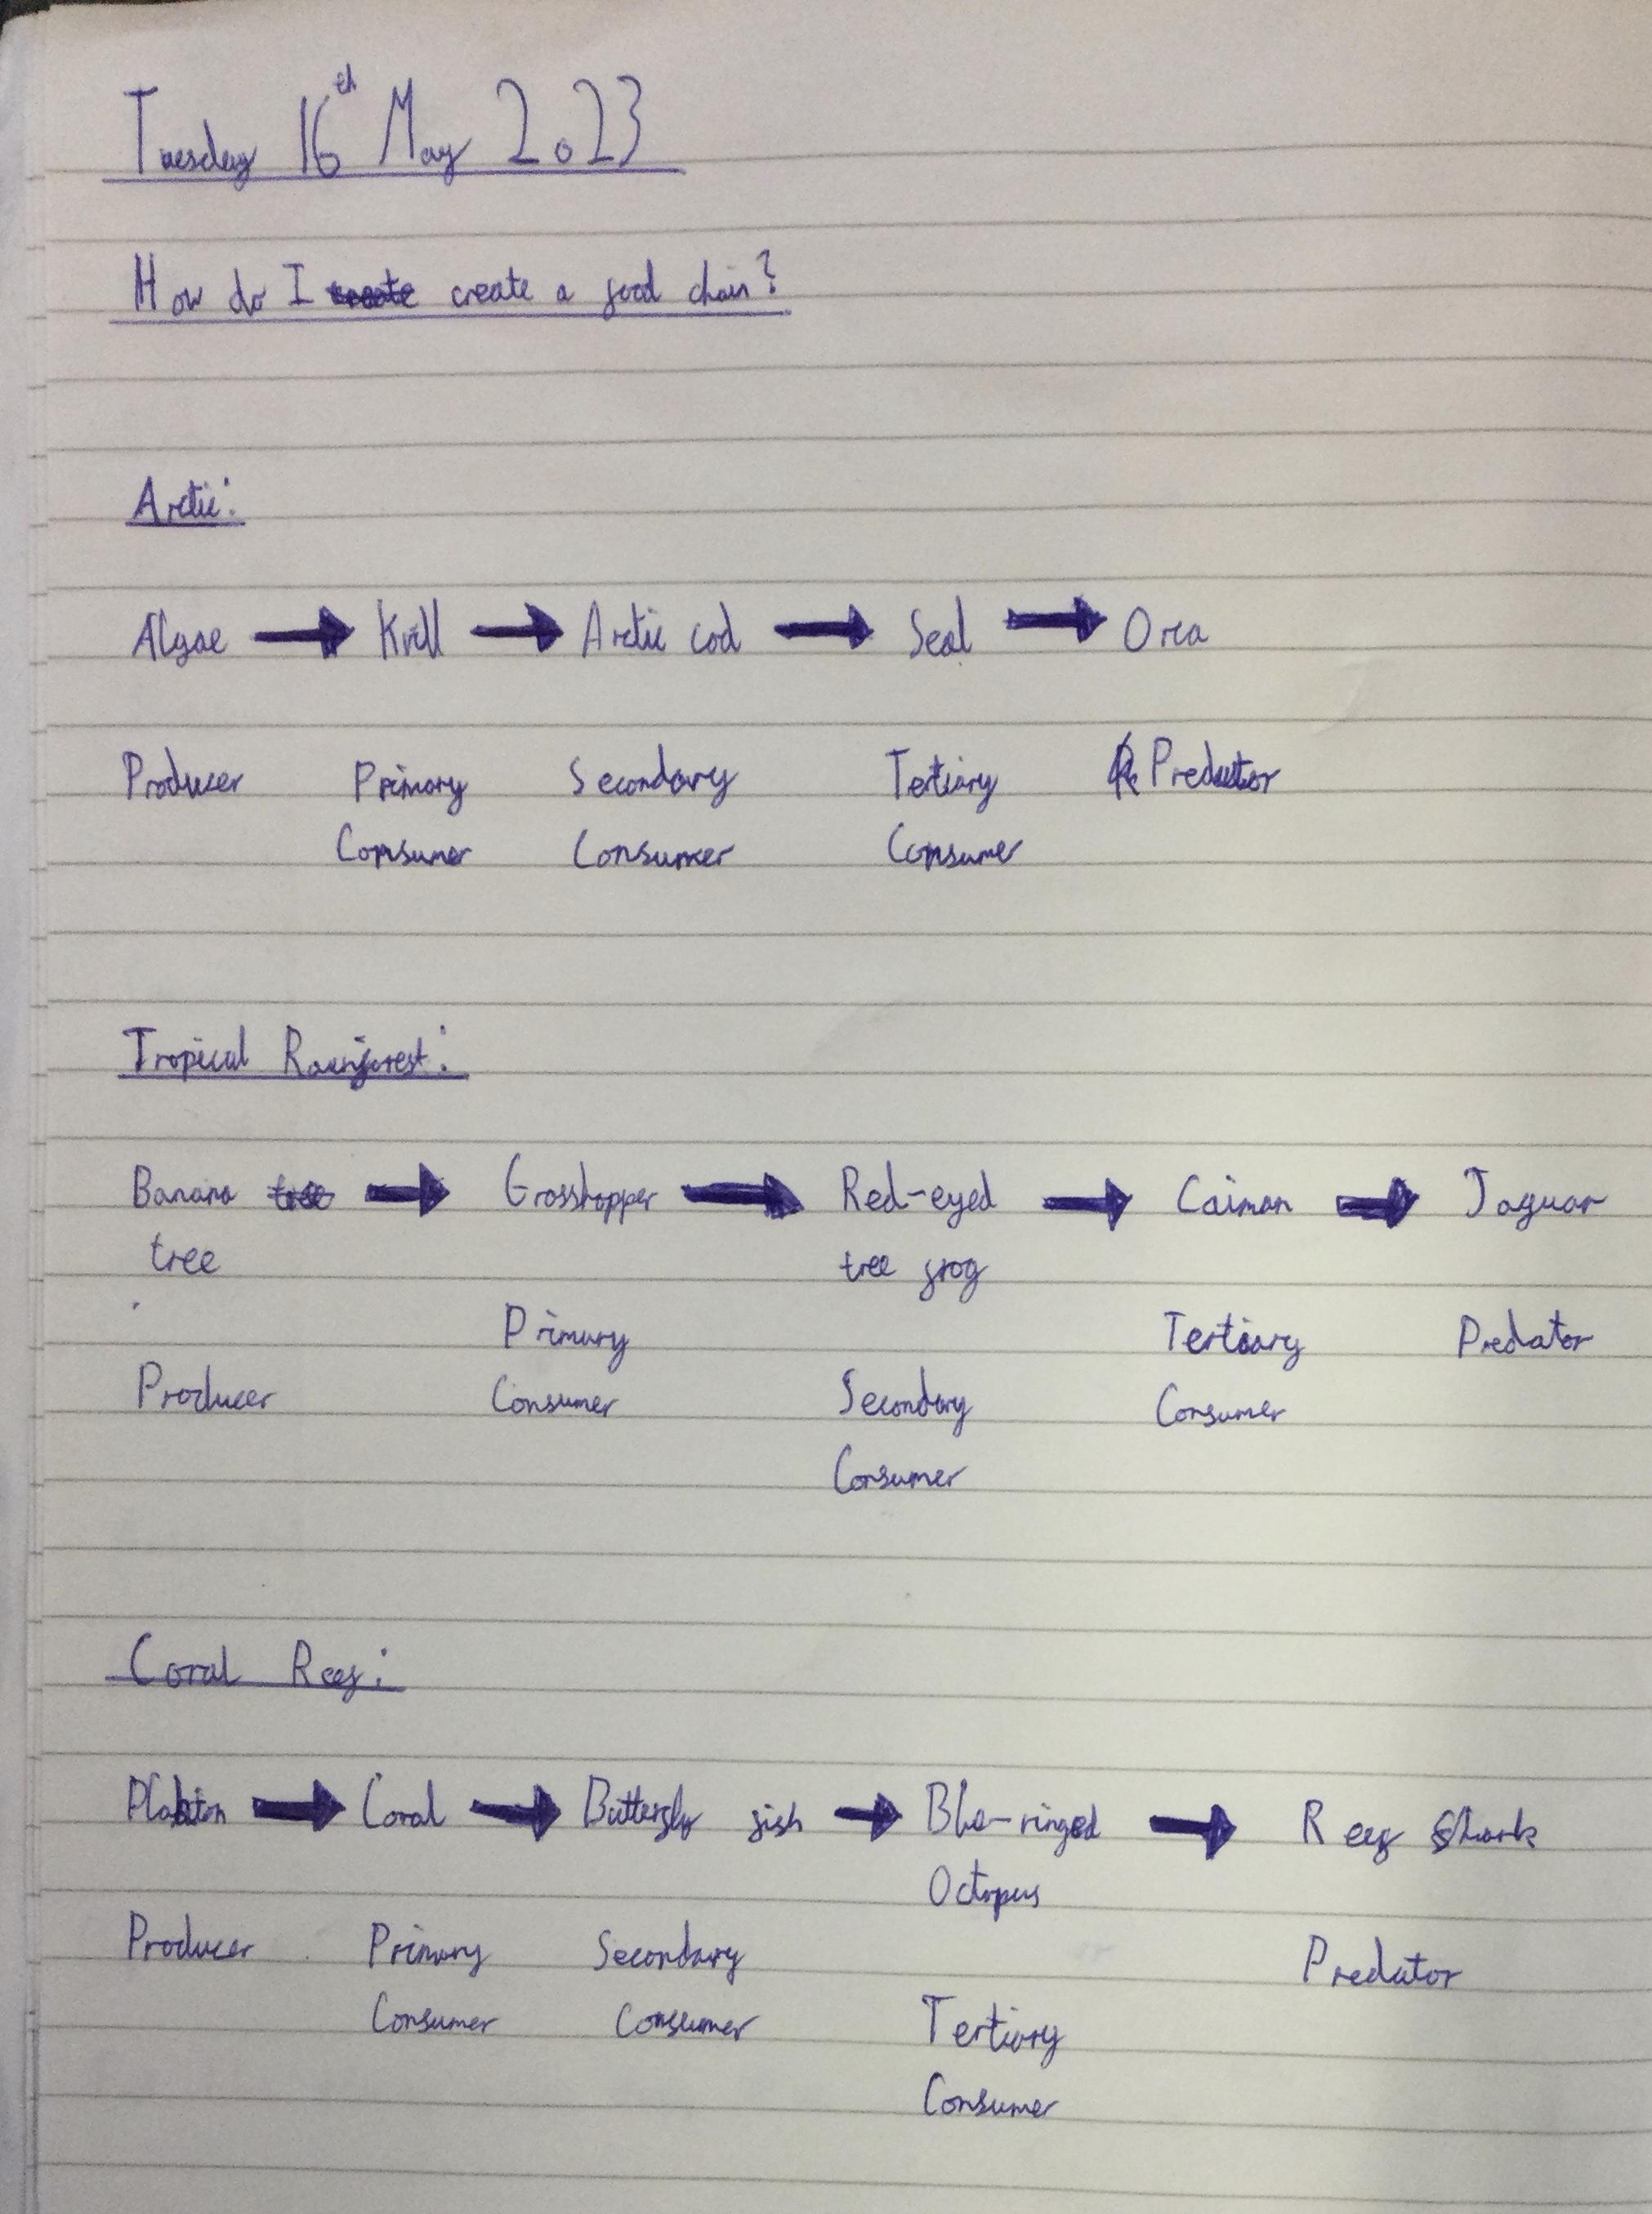 Tuesday 16th May 2023
How do I create create a food chain?
Arctic:
Algae → Krill → Arctic cod → Seal → Orca
Producer Primary Secondary Tertiary Predator
Consumer Consumer Consumer
Tropical Rainforest:
Banana tree → Grasshopper → Red-eyed → Caiman → Jaguar
tree tree frog
Primary Tertiary Predator
Producer Consumer Secondary Consumer
Consumer
Coral Reef:
Plankton → Coral → Butterfly fish → Blue-ringed → Reef Shark
Octopus
Producer Primary Secondary Predator
Consumer Consumer Tertiary
Consumer